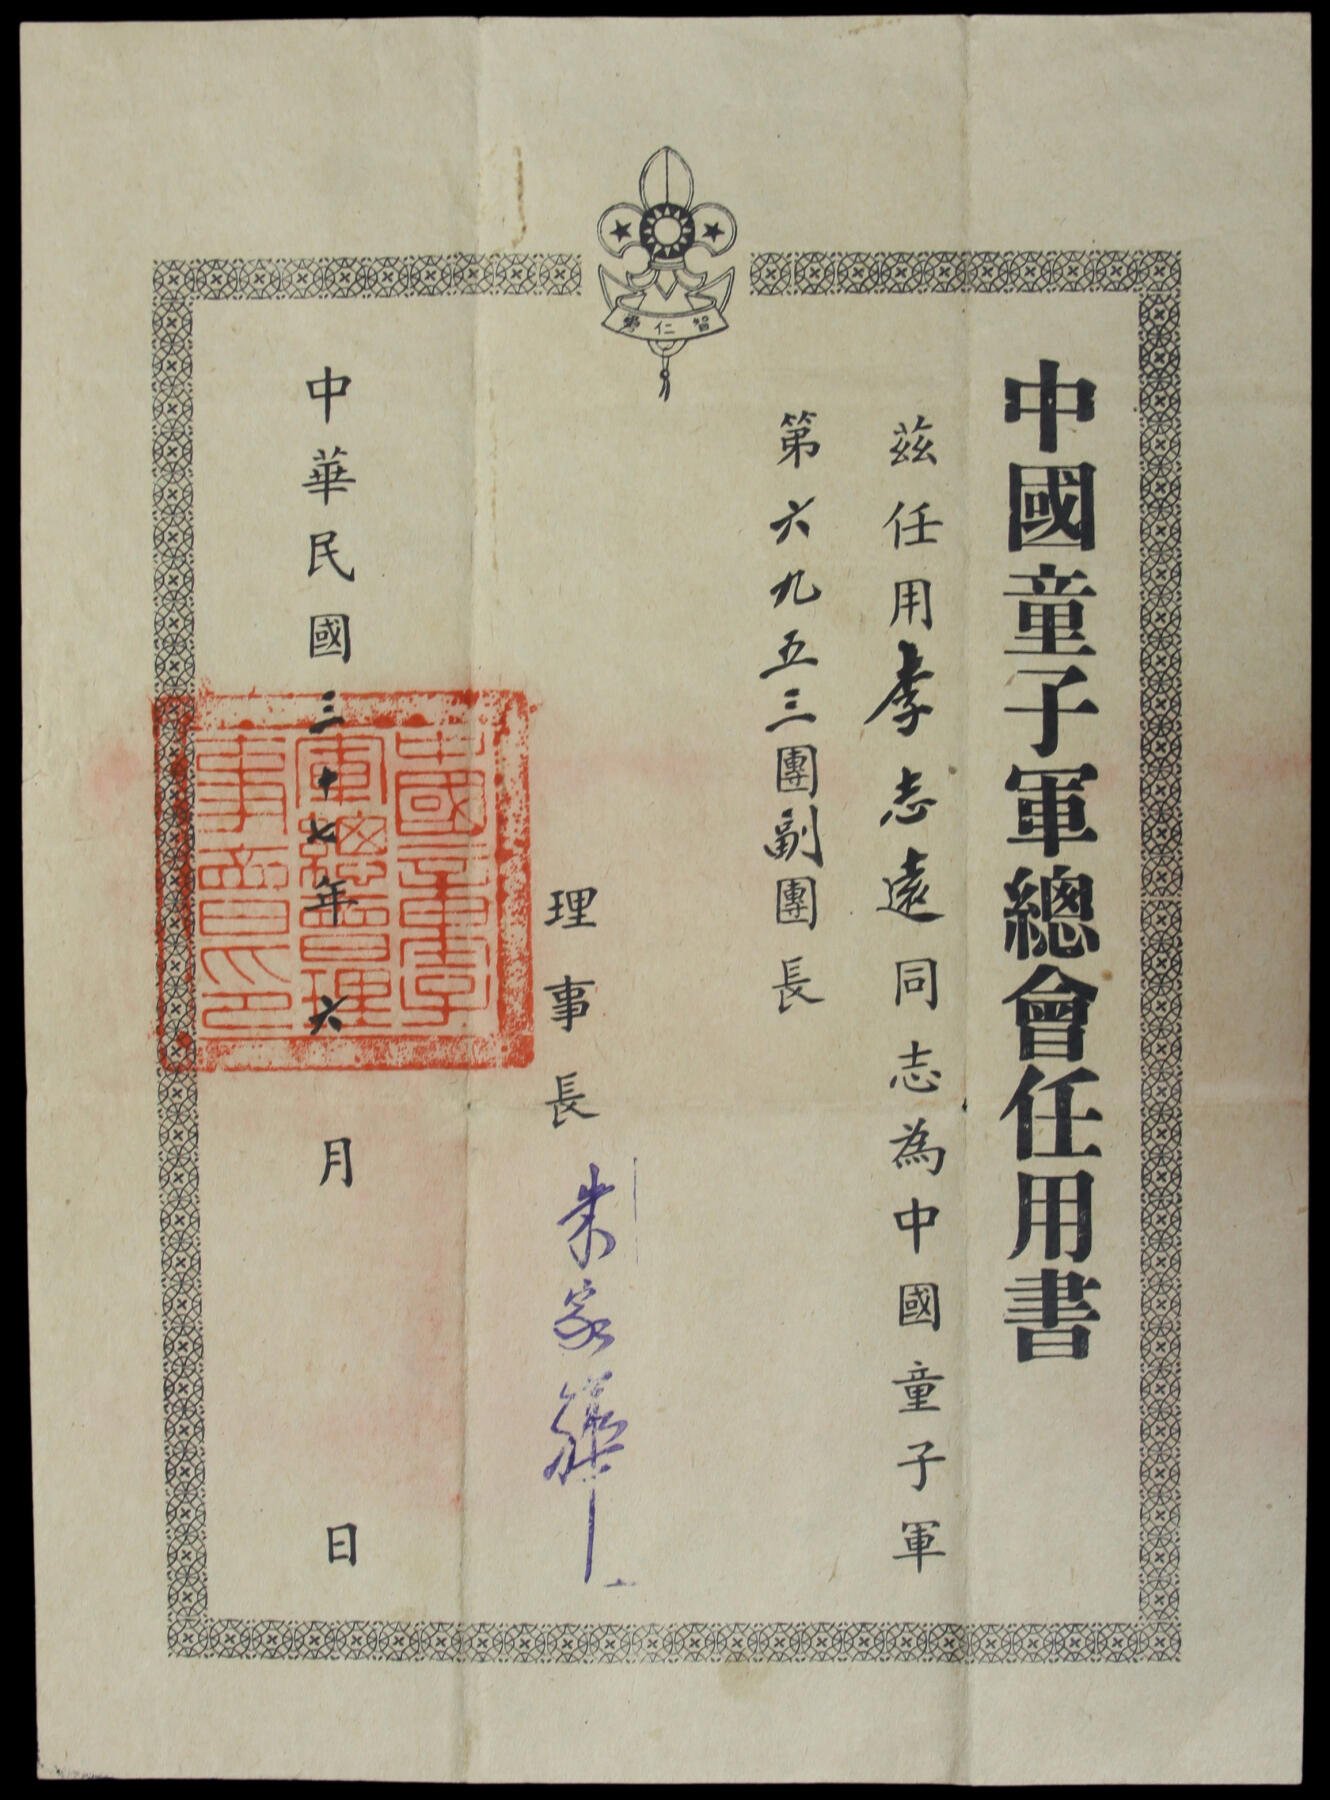 智仁勇
中國童子軍總會任用書
茲任用李志遠同志為中國童子軍
第六九五三團副團長
理事長 朱家驊
中國童子
軍總會理
事會印
中華民國三十七年六月 日